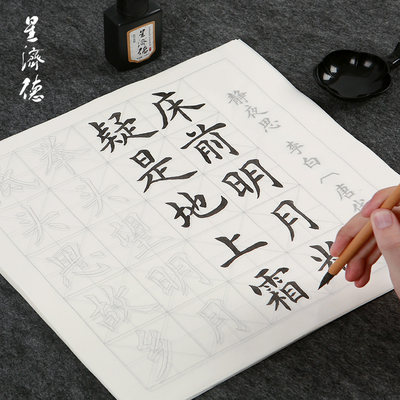 星濟德
静夜思 李白（唐代
床前明月光
疑是地上霜
举头望明月
低头思故乡